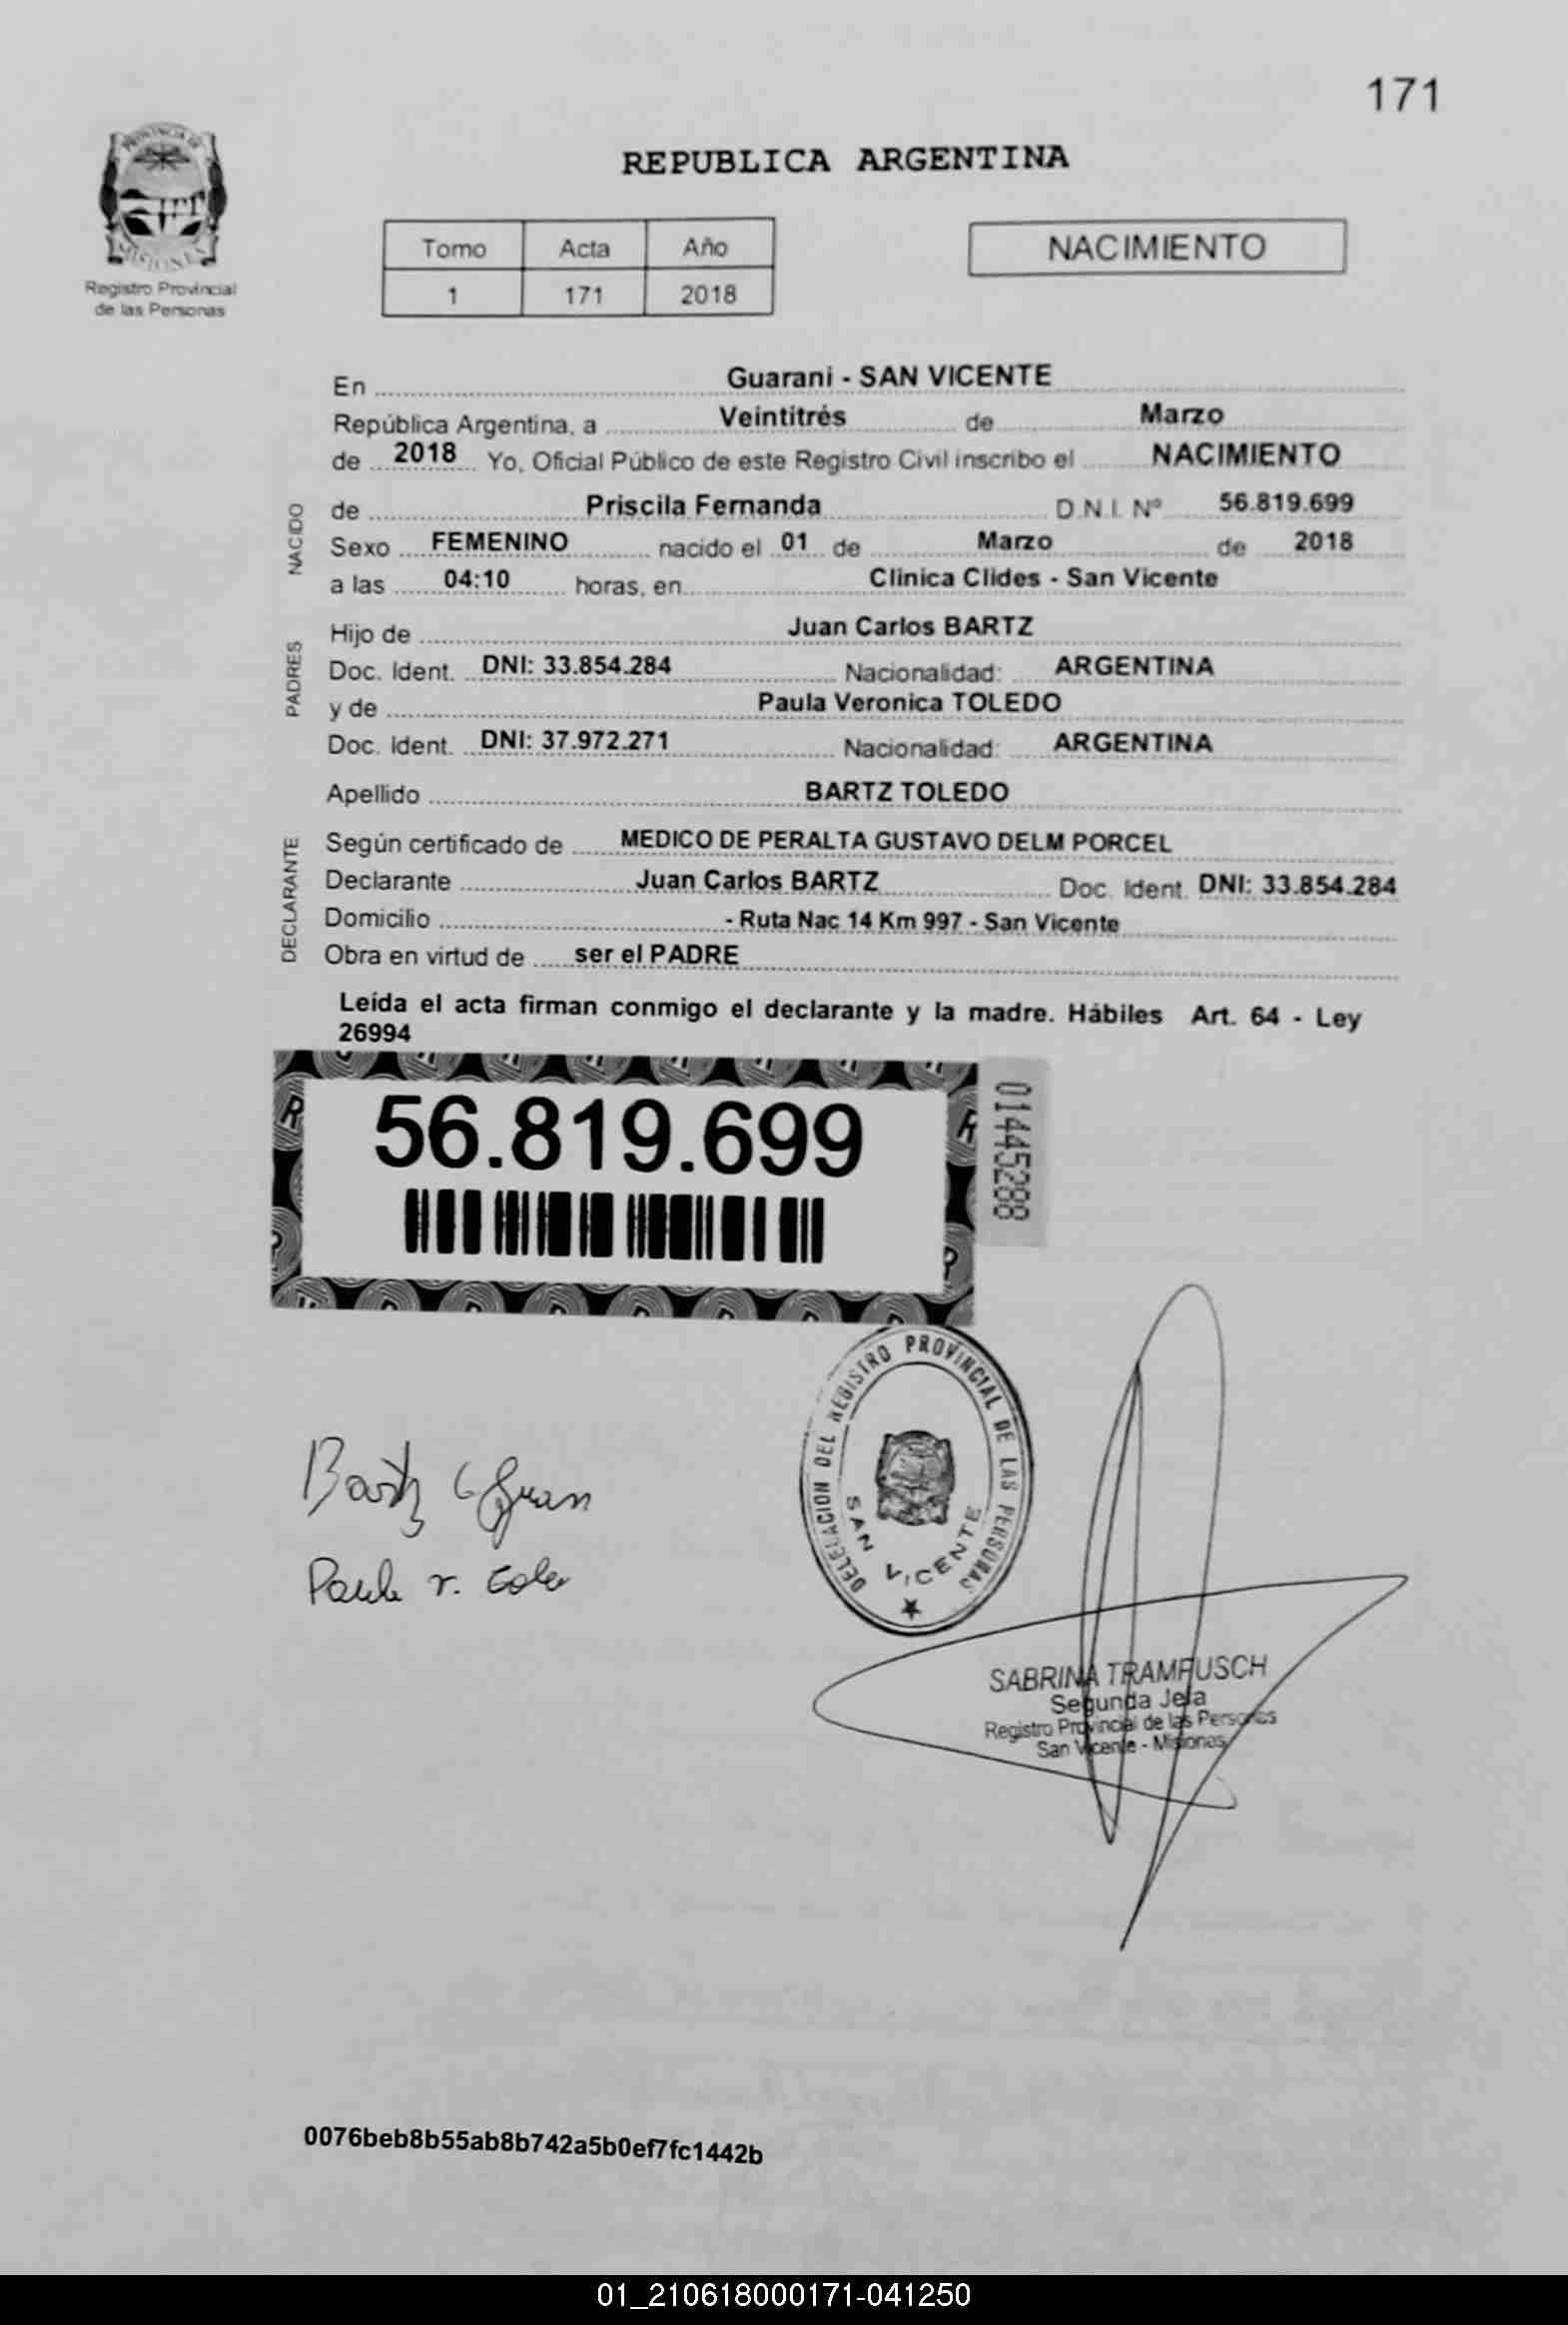 171
PROVINCIA DE
MISIONES
Registro Provincial
de las Personas
REPUBLICA ARGENTINA
Tomo Acta Año
1 171 2018
NACIMIENTO
En Guarani - SAN VICENTE
República Argentina, a Veintitrés de Marzo
de 2018 Yo, Oficial Público de este Registro Civil inscribo el NACIMIENTO
NACIDO
de Priscila Fernanda D N I Nº 56.819.699
Sexo FEMENINO nacido el 01 de Marzo de 2018
a las 04:10 horas, en Clinica Clides - San Vicente
PADRES
Hijo de Juan Carlos BARTZ
Doc. Ident. DNI: 33.854.284 Nacionalidad: ARGENTINA
y de Paula Veronica TOLEDO
Doc. Ident. DNI: 37.972.271 Nacionalidad: ARGENTINA
Apellido BARTZ TOLEDO
DECLARANTE
Según certificado de MEDICO DE PERALTA GUSTAVO DELM PORCEL
Declarante Juan Carlos BARTZ Doc. Ident. DNI: 33.854.284
Domicilio - Ruta Nac 14 Km 997 - San Vicente
Obra en virtud de ser el PADRE
Leída el acta firman conmigo el declarante y la madre. Hábiles Art. 64 - Ley
26994
56.819.699
01445288
DELEGACION DEL REGISTRO PROVINCIAL DE LAS PERSONAS
SAN VICENTE
Bartz Juan
SABRINA TRAMPUSCH
Segunda Jefa
Registro Provincial de las Personas
San Vicente - Misiones
0076beb8b55ab8b742a5b0ef7fc1442b
01_210618000171-041250